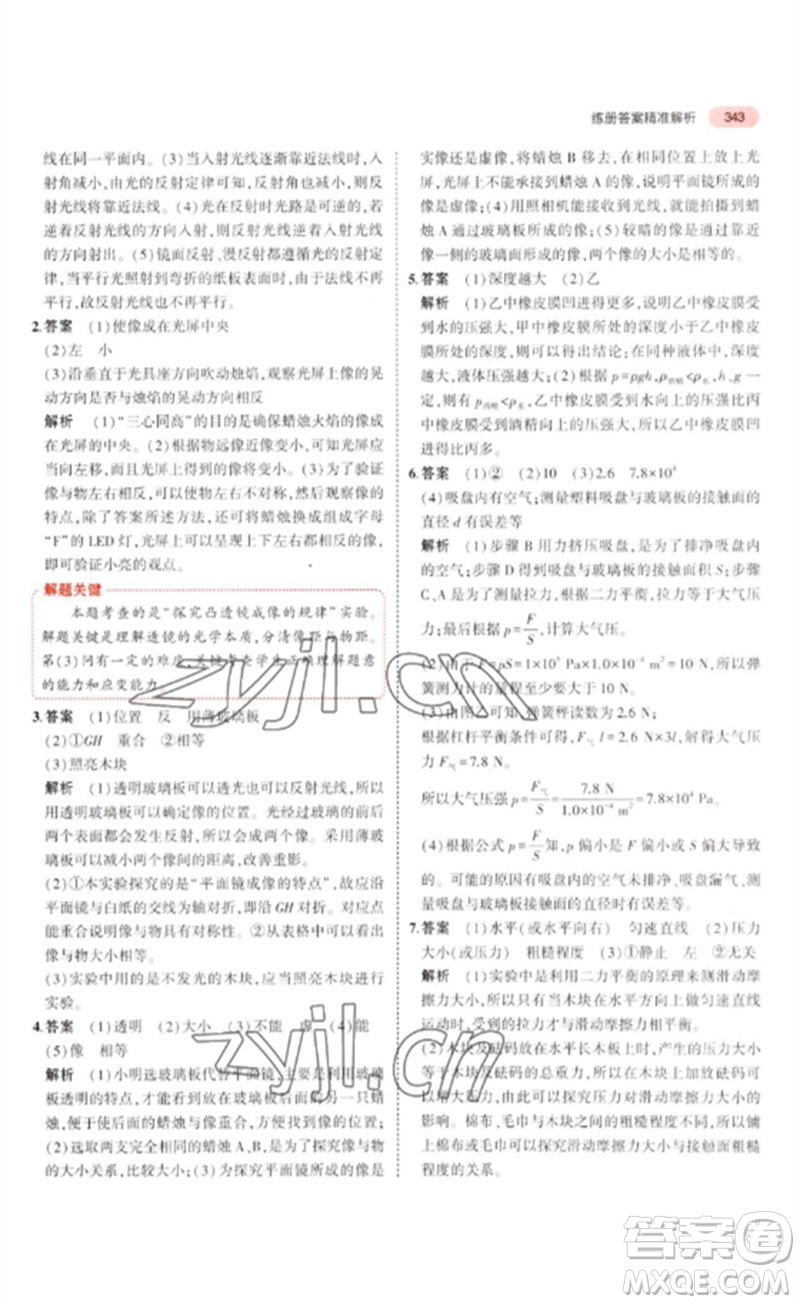 练册答案精准解析 343
线在同一平面内。(3)当入射光线逐渐靠近法线时,入
射角减小,由光的反射定律可知,反射角也减小,即反
射光线将靠近法线。(4)光在反射时光路是可逆的,若
逆着反射光线的方向入射,则反射光线逆着入射光线
的方向射出。(5)镜面反射、漫反射都遵循光的反射定
律,当平行光照射到弯折的纸板表面时,法线不再
平行,故反射光线也不再平行。
2.答案 (1)使像成在光屏中央
(2)左 小
(3)沿垂直于光具座方向吹动烛焰,观察光屏上像的晃
动方向是否与烛焰的晃动方向相反
解析 (1)“三心同高”的目的是确保蜡烛火焰的像成
在光屏的中央。(2)根据物远像近像变小,可知光屏应
当向左移动,且光屏上得到的像将变小。(3)为了验证
像与物左右相反,可以利用左右不对称、会晃动的像的
特点,除了答案所述方法,还可将蜡烛换成组成字母
“F”的LED灯,光屏上得到一个上下、左右相反的像,
即可验证小亮的观点。
解题关键
本题考查的是“探究凸透镜成像的规律”实验。
解题关键是理解透镜的光学本质,分清像距与物距。
第(3)问有一定的难度,关键考查学生正确理解题意
的能力和应变能力。
3.答案 (1)位置 反 用薄玻璃板
(2)①GH 重合 ②相等
(3)照亮木块
解析 (1)玻璃板可以透光也可以反射光线,所以使
用透明玻璃板可以确定像的位置。光经过玻璃的前后
两个表面都会发生反射,所以会成两个像。采用薄玻
璃板可以减小两个像间的距离,改善重影。
(2)①本实验探究的是“平面镜成像的特点”,故应沿
平面镜与白纸的交线为轴对折,即沿GH对折。对应点
能重合说明像与物具有对称性。②从表格中可以看出
像与物大小相等。
(3)实验中用的是不发光的木块,应当照亮木块进行
实验。
4.答案 (1)透明 (2)大小 (3)不能 虚 (4)能
(5)像 相等
解析 (1)小明选玻璃板代替平面镜,主要是利用玻
璃板透明的特点,才能看到玻璃板后面的另一只蜡
烛,便于使后面的蜡烛与像重合,方便找到像的位置;
(2)选取两支完全相同的蜡烛A、B,是为了探究像与物
的大小关系,比较大小;(3)为了探究平面镜所成的像是
实像还是虚像,将蜡烛B移去,在同一位置上放上光
屏,光屏上不能承接到蜡烛A的像,说明平面镜所成的
像是虚像;(4)用照相机能接收到光线,就能拍摄到蜡
烛A通过玻璃板所成的像。(5)较暗的像是由离蜡烛近
像一侧的玻璃面形成的,两个像的大小是相等的。
5.答案 (1)深度越大 (2)乙
解析 (1)乙中橡皮膜凹进得更多,说明乙中橡皮膜受
到水的压强大,甲中橡皮膜所处的深度小于乙中橡皮
膜所处的深度,即可得出结论;在同种液体中,深度
越大,液体压强越大;(2)根据p=ρgh,ρ酒精<ρ水,h、g一
定,则有p酒精<p水,乙橡皮膜受到水向上的压强比丙
中橡皮膜受到的酒精向上的压强大,乙橡皮膜向上凹
进得比丙多。
6.答案 (1)② (2)10 (3)2.6 7.8×10⁴
(4)吸盘内有空气;测量塑料吸盘与玻璃板的接触面的
直径d有误差等
解析 (1)步骤B用力挤压吸盘,是为了排净吸盘内
的空气;步骤D测直径是为了测量吸盘的面积;步骤
C、A是为了测量拉力,根据二力平衡,拉力大小等于压
力;最后根据p=F/S,计算大气压。
(2)由p=F/S得F=pS=1×10⁵ Pa×1.0×10⁻⁴ m²=10 N,所以弹
簧测力计的量程至少大于10 N。
(3)由图乙可知,弹簧秤读数为2.6 N;
根据杠杆平衡条件可得,F气·l=2.6 N×3l,解得大气压
力F气=7.8 N。
所以大气压强p=F气/S=7.8 N/1.0×10⁻⁴ m²=7.8×10⁴ Pa。
(4)根据公式p=F/S知,p偏小是F偏小或S偏大导致
的。可能的原因有吸盘内的空气未排净、吸盘漏气、测
量吸盘与玻璃板接触面的直径时有误差等。
7.答案 (1)水平(或水平向右) 匀速直线 (2)压力
大小(或压力) 粗糙程度 (3)①静止 左 ②无关
解析 (1)实验是利用二力平衡的原理来测量滑动摩
擦力大小的,所以应当使木块在水平面上做匀速直线
运动时,受到的拉力才与滑动摩擦力相平衡。
(2)木块及砝码放在长木板上时,产生的压力大小等于
木块及砝码的重力,所以增加砝码可以探究压力大小的
影响。棉布、毛巾与木块之间的粗糙程度不同,所以铺
上棉布或毛巾可以探究滑动摩擦力大小与接触面粗糙
程度的关系。
zyjl.cn
zyjl.cn
答案圈
MXQE.COM